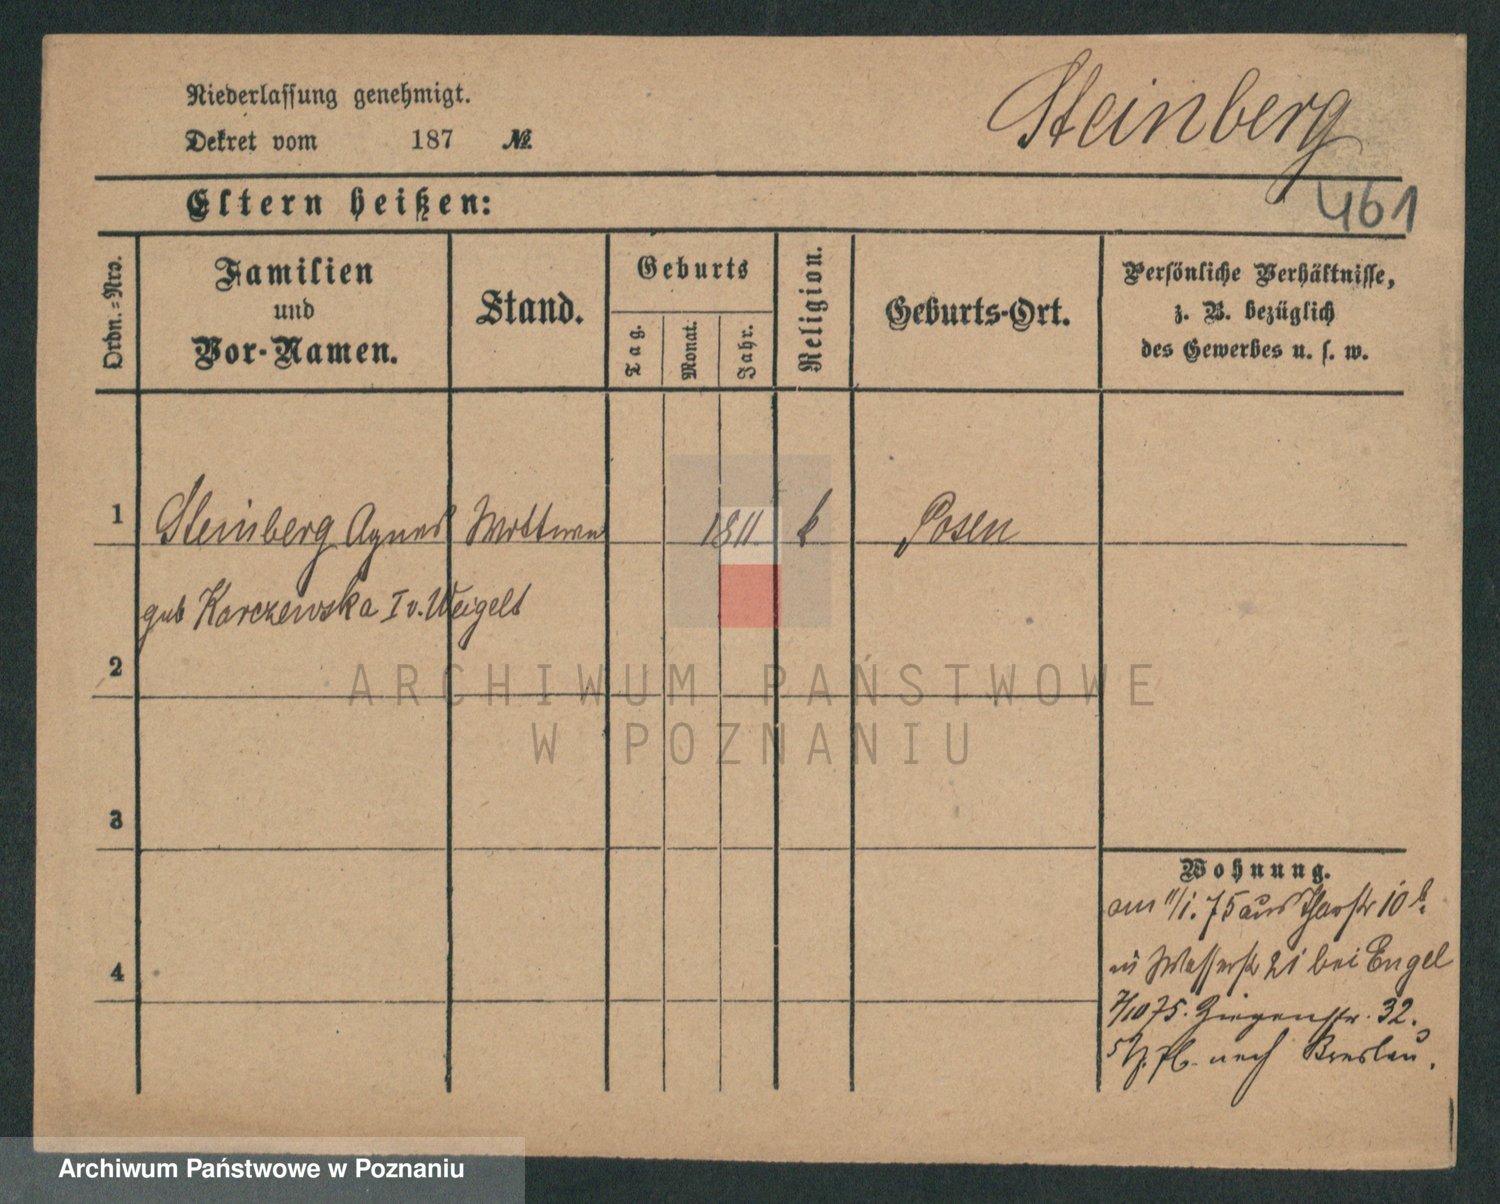 Niederlassung genehmigt.
Dekret vom 187 №
Steinberg
461
Eltern heißen:
Ordn.-Nro.
Familien
und
Vor-Namen.
Stand.
Geburts
Tag.
Monat.
Jahr.
Religion.
Geburts-Ort.
Persönliche Verhältnisse,
z. B. bezüglich
des Gewerbes u. s. w.
1 Steinberg Agnes Wittwe 1811. k Posen
geb Karczewska I v. Weigelt
2
3
4
Wohnung.
am 11/1. 75 aus 10 b.
in Wasserstr 21 bei Engel
7/10 75. Ziegenstr. 32.
nach Breslau.
ARCHIWUM PAŃSTWOWE
W POZNANIU
Archiwum Państwowe w Poznaniu